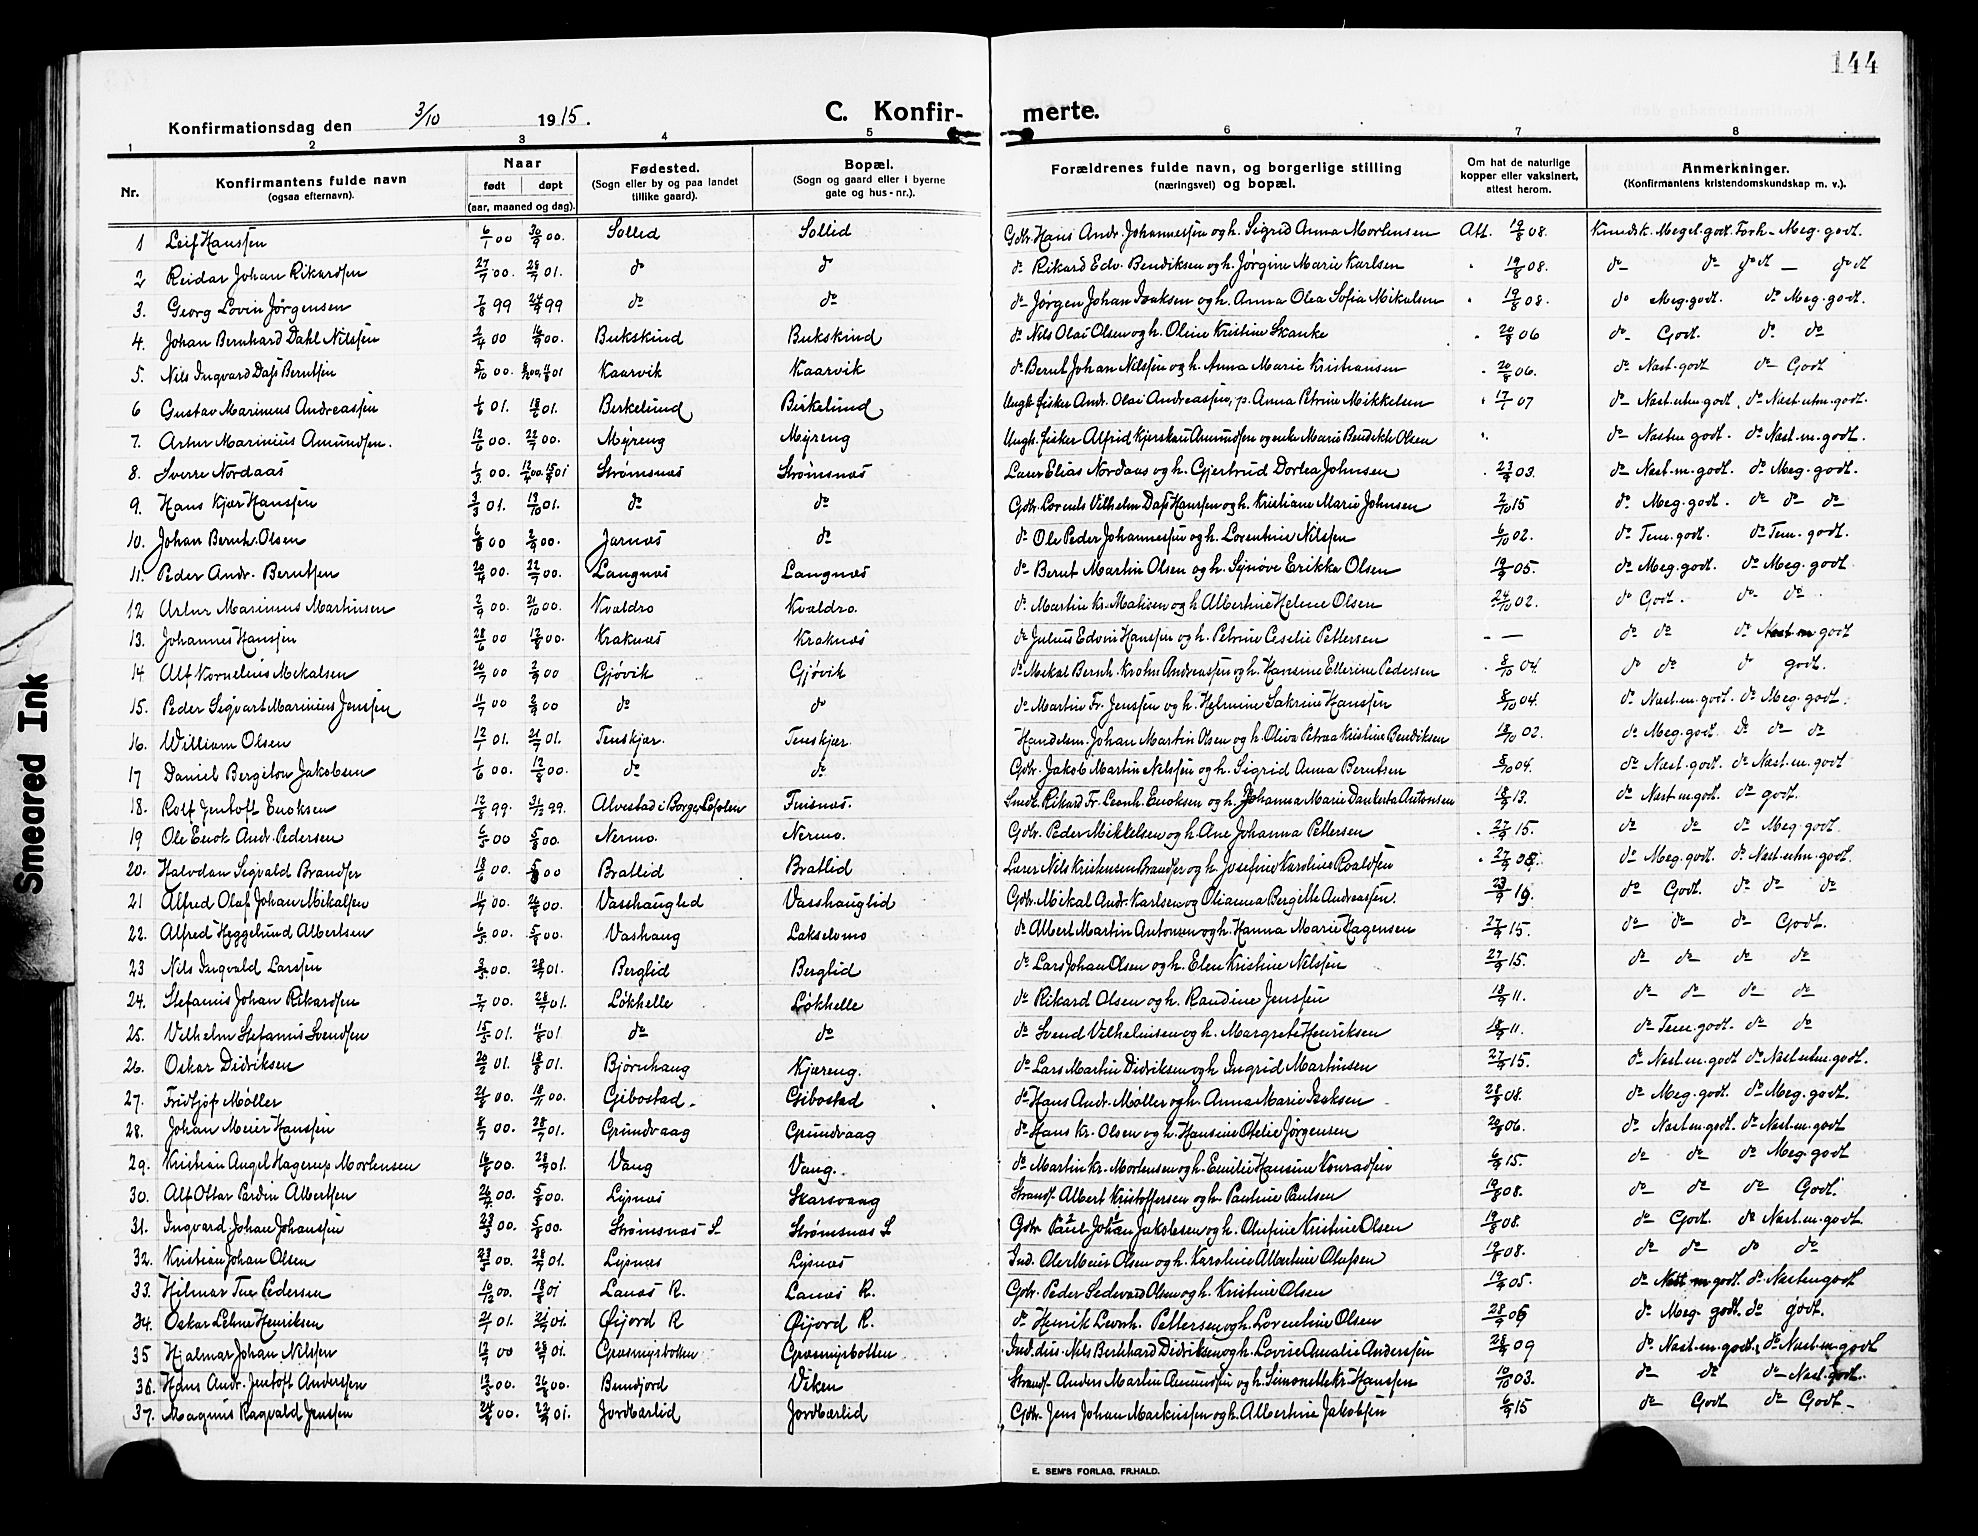 144
Konfirmationsdag den 3/10 1915.
C. Konfirmerte.
1 2 3 4 5 6 7 8
Nr. Konfirmantens fulde navn (ogsaa efternavn). Naar født døpt (aar, maaned og dag). Fødested. (Sogn eller by og paa landet tillike gaard). Bopæl. (Sogn og gaard eller i byerne gate og hus-nr.). Forældrenes fulde navn, og borgerlige stilling (næringsvei) og bopæl. Om hat de naturlige kopper eller vaksinert, attest herom. Anmerkninger. (Konfirmantens kristendomskundskap m. v.).
1 Leif Hanssen 6/1 00 30/9 00. Sollid Sollid Gdbr. Hans Andr. Johannessen og h. Sigrid Anna Mortensen Att. 19/8 08. Kundsk. Meget godt. Forh- Meg. godt.
2 Reidar Johan Rikardsen 27/7 00. 28/7 01. do do do Rikard Edv. Bendiksen og h. Jørgine Marie Karlsen " 19/8 08. do do godt
3. Georg Lovin Jørgensen 7/8 99 24/9 99 do do do Jørgen Johan Isaksen og h. Anna Olea Sofia Mikalsen " 19/8 08. do Meg. godt. do Meg. godt.
4. Johan Bernhard Dahl Nilssen 2/4 00 16/9 00. Bukskind Bukskind do Nils Olai Olsen og h. Oline Kristine Skanke " 20/8 06 do Godt. do do
5. Nils Ingvard Dass Berntsen 5/10 00. Kaarvik Kaarvik do Bernt Johan Nilssen og h. Anna Marie Kristiansen " 20/8 06. do Nast. godt do Godt
6 Gustav Marinius Andreassen 1/6 01. 18/8 01. Birkelund Birkelund Ungk. fisker Andr. Olai Andreassen, p. Anna Petrine Mikkelsen " 17/7 07 do Nast. utm. godt. do Nast. utm. godt.
7. Artur Marinius Amundsen. 12/6 00. 22/7 00. Myreng Myreng Ungk. fisker Alfrid Kjerskau Amundsen og enke Marie Bendikte Olsen " do Nast m godt. do Nast. m. godt.
8. Sverre Nordaas 1/3 00. Strømsnæs Strømsnæs Lærer Elias Nordaas og h. Gjertrud Dorlea Johnsen 23/9 03. do Nast. m. godt. do Meg. godt.
9. Hans Kjær Hanssen 3/3 01. 13/10 01. do do Gdbr. Lorents Vilhelm Dass Hanssen og h. Kristiane Marie Johnsen 2/10 15 do Meg. godt. do do do
10. Johan Bernh. Olsen 6/8 00 2/9 00. Jarnæs do do Ole Peder Johannessen og h. Lorentine Nilssen 6/10 02. do Tem. godt. do Tem. godt.
11. Peder Andr. Berntsen 20/4 00. 22/7 00. Langnæs Langnæs do Bernt Martin Olsen og h. Synøve Erikka Olsen 19/9 05. do Meg. godt. do Meg. godt
12 Artur Marinius Martinsen 2/9 00. 21/10 00. Kvaldro Kvaldro. do Martin Kr. Matisen og h Albertine Helene Olsen 24/10 02. do Godt. do do
13. Johannes Hanssen 28/6 00 12/8 00. Kraknæs Kraknæs do Julius Edvin Hanssen og h. Petrine Cecelie Pettersen - — do do do Nast m godt
14 Alf Kornelius Mekalsen 20/7 00 2/9 00 Gjøvik Gjøvik do Mekal Bernh. Krohn Andreassen og h. Hansine Ellerine Pedersen 8/10 04. do do do godt.
15. Peder Sigvart Marinius Jenssen 11/7 00 2/9 00 do do do Martin Fr. Jenssen og h. Helmine Sakrine Hanssen 8/10 04. do Nast. m. godt. do Meg. godt.
16. William Olsen 12/1 01. 21/7 01. Tenskjær. Tenskjær. Handelsm. Johan Martin Olsen og h. Oliva Petrea Kristine Bendiksen 18/10 02. do Meg. godt. Do do do
17 Daniel Bergiton Jakobsen 1/6 00. 12/8 00. do do Gdbr. Jakob Martin Nilssen og h. Sigrid Anna Berntsen 8/10 04. do Nast. godt. do Nast. m. godt
18. Rolf Jentoft Enoksen 12/8 99. 31/12 99. Alvestad i Borge, Lofoten Finsnæs. Smed. Rikard Fr. Leonh. Enoksen og h. Johanna Marie Dankerta Antonsen 18/9 13. do Nast. m. godt. do godt.
19 Ole Enok Andr. Pedersen 6/5 00 5/8 00. Nermo. Nermo. Gdbr. Peder Mikkelsen og h. Ane Johanna Pettersen 27/9 15. do do do Meg. godt.
20. Halvdan Sigvald Brandser 18/6 00 5/8 00 Bratlid Bratlid Lærer Nils Kristensen Brandser og h. Josefine Karoline Roaldsen 27/9 08. do Meg. godt. do Nast. utm. godt.
21 Alfred Olaf Johan Mikalsen 11/7 00 26/8 00. Vasshauglid Vasshauglid Gdbr. Mikal Andr. Karlsen og Olianna Bergitte Andreassen. 23/9 19. do Godt. do do do
22. Alfred Heggelund Albertsen 6/5 00. 5/8 00. Vashaug Lakselvmo do Albert Martin Antonsen og h. Hanna Marie Hagensen 27/9 15. do do do Godt.
23 Nils Ingvald Larssen 3/8 00. 28/7 01. Berglid Berglid do Lars Johan Olsen og h. Elen Kristine Nilssen 27/9 15. do do do do
24. Stefanis Johan Rikardsen 7/7 00. 28/7 01. Løkhelle Løkhelle do Rikard Olsen og h. Randine Jenssen 18/9 11. do do do do
25. Vilhelm Stefanus Svendsen 15/5 01. 11/8 01 do do do Svend Vilhelmsen og h. Margrete Henriksen 18/9 11. do Tem. godt. do do
26. Oskar Didriksen 20/2 01. 18/8 01. Bjørnhaug Kjæreng. do Lars Martin Didriksen og h Ingrid Martinsen 27/9 15. do Nast. m. godt do Nast. utm. godt.
27. Fridtjof Møller 21/8 00. 18/11 00. Gibostad. Gibostad do Hans Andr. Møller og h. Anna Marie Isaksen 28/8 08. do Meg. godt. do Meg. godt.
28. Johan Meier Hanssen 8/7 00. 28/7 01. Grundvaag Grundvaag do Hans Kr. Olsen og h. Hansine Otelie Jørgensen 20/8 06. do Nast. m. godt. do Nast. m. godt
29. Kristian Angel Hagerup Mortensen 16/8 00. 28/7 01. Vang Vang. do Martin Kr. Mortensen og h. Emilie Hansine Konradsen 6/9 15. do do do Meg. godt
30. Alf Ottar Pardin Albertsen 26/4 00. 5/8 00. Lysnæs Skarsvaag Strands. Albert Kristoffersen og h. Pauline Paulsen 19/8 08. do do do Godt.
31. Ingvard Johan Johanssen 23/3 00. 5/8 00. Strømsnæs S Strømsnæs S Gdbr. Paul Johan Jakobsen og h. Olufine Kristine Olsen 19/8 08. do Godt. do Nast. m. godt.
32. Kristian Johan Olsen 23/5 00. 28/7 01. Lysnæs Lysnæs Ind. Ole Meier Olsen og h. Karoline Albertine Olufsen 19/8 08. do do do do
33. Hilmar Pedersen 10/12 00. 18/8 01 Lanæs R. Lanæs R. Gdbr. Peder Sedevard Olsen og h. Kristine Olsen 19/9 05. do Nast m godt. do Nast m godt
34. Oskar Lehne Henriksen 21/1 01. 21/7 01. Øijord R Øijord R. do Henrik Leonh. Pettersen og h. Lorentine Olsen 28/8 06 do Meg. godt. do godt.
35 Hjalmar Johan Nilssen 12/7 00 28/7 01. Græsmyrbotten Græsmyrbotten Ind. Nils Bernhard Didriksen og h. Lovise Amalie Anderssen 28/9 09 do Nast. m. godt, do Nast. m. godt
36. Hans Andr. Jentoft Andersen 12/5 00. 26/8 00. Bundjord Viken Strands. Anders Martin Amundsen og h. Simonette Kr. Hanssen 10/10 03. do do do Nast. godt.
37. Magnus Ragvald Jenssen 24/8 00. 22/9 01. Jordbærlid Jordbærlid Gdbr. Jens Johan Markussen og h. Albertine Jakobsen 6/9 15 do Godt do Godt
E. SEM'S FORLAG, FR.HALD.
Smeared Ink